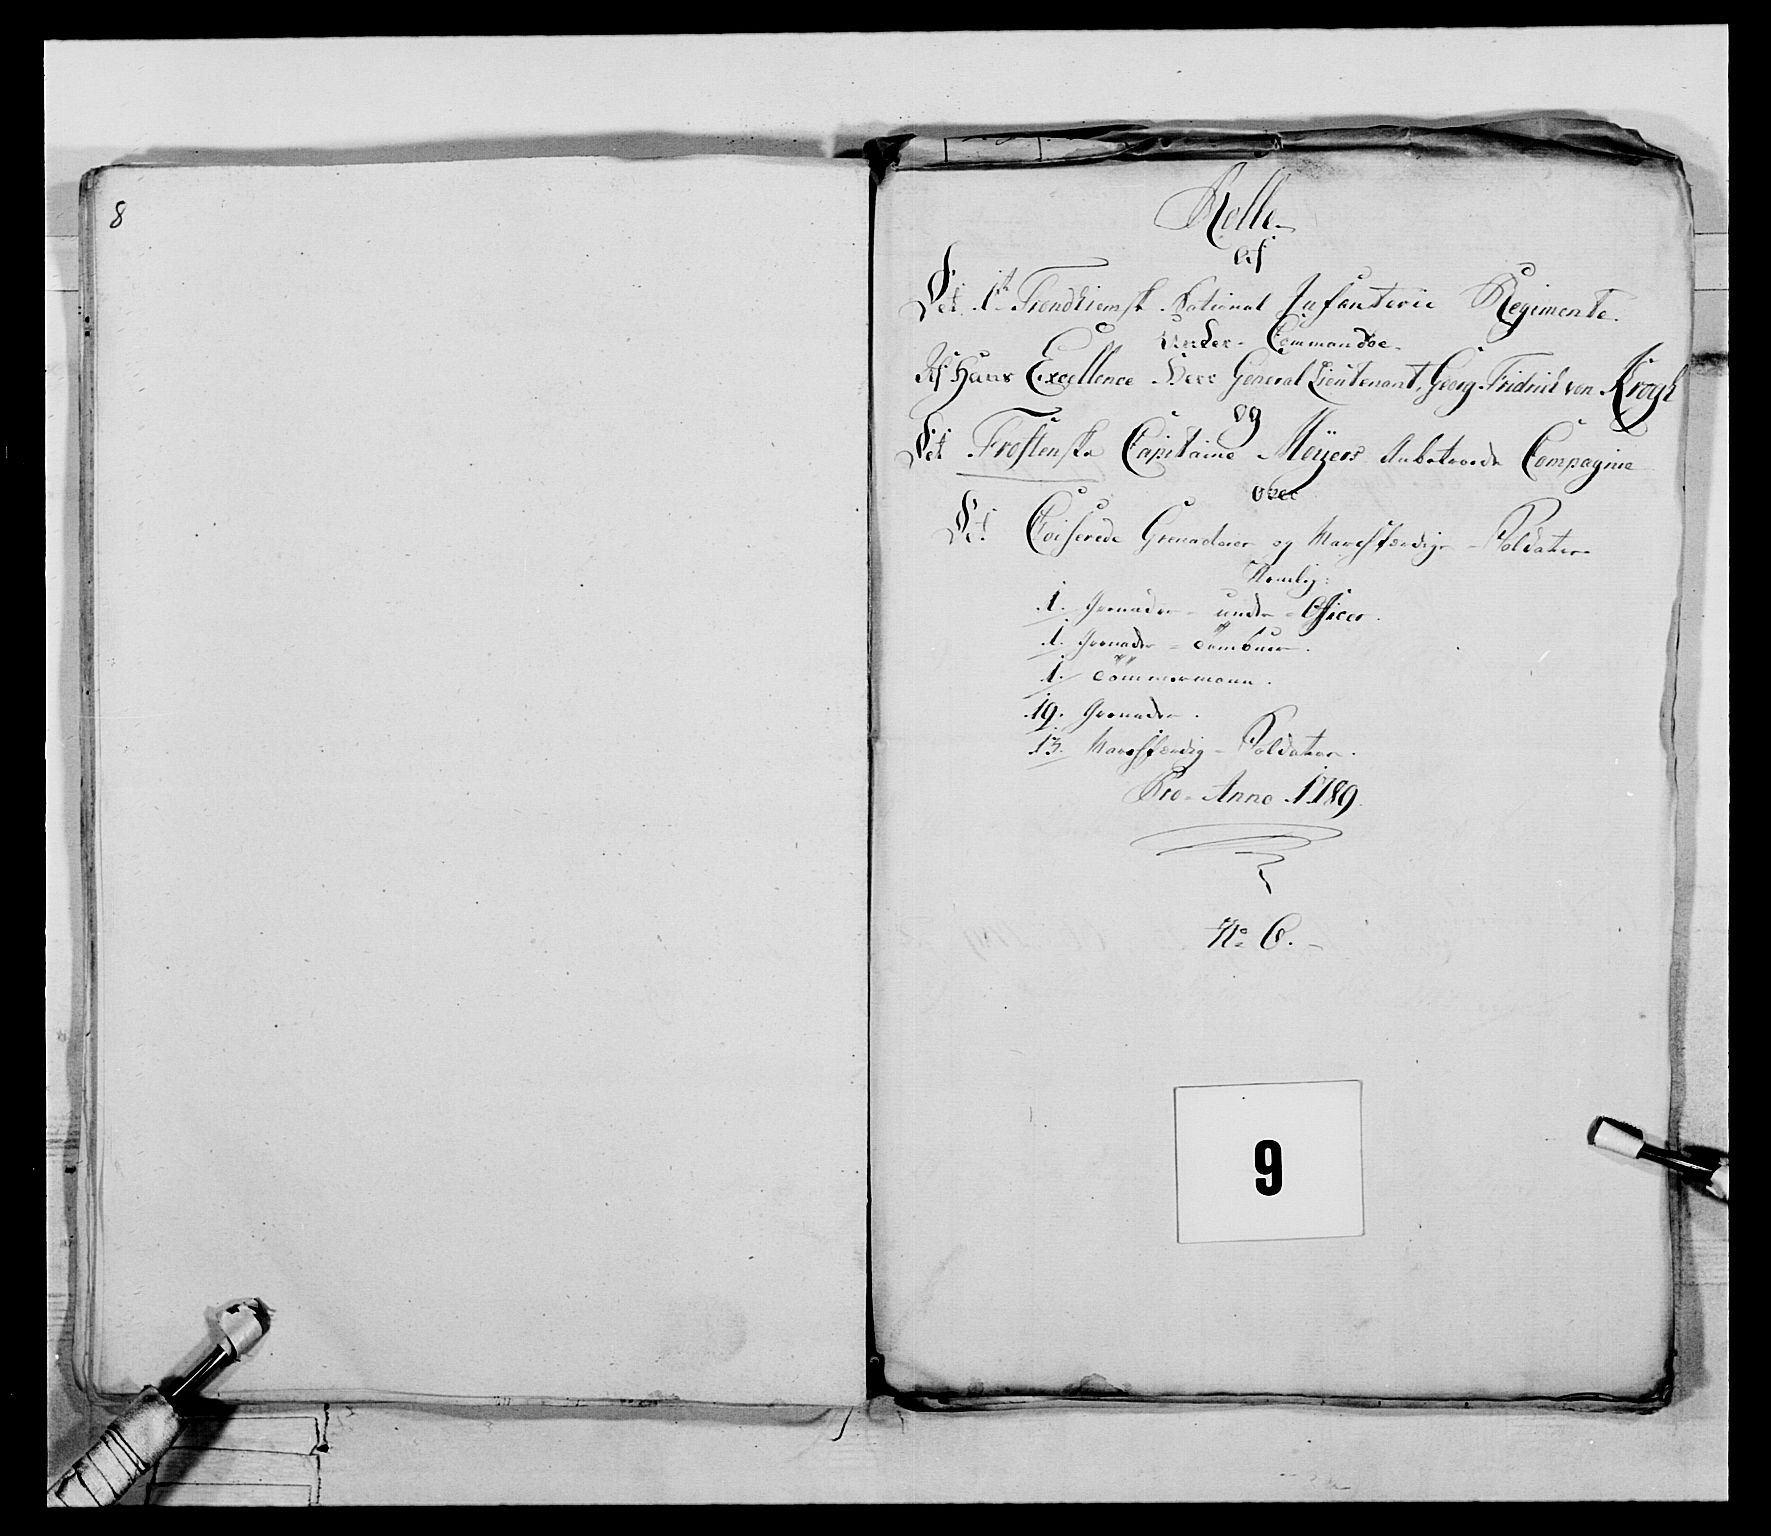 8
Rolle
Af
Det 1te Trondhiemsk National Infanterie Regimente.
Under Commandoe
Af Hans Excellence Herr General Lieutenant, Georg Fridrich von Krogh
og
Det Frostenske Capitaine Meÿers Anbetroede Compagnie
over
De Croiserede Grenadeier og Marchfærdige Soldater
Nemlig:
1. Grenader - under - Officer.
1. Grenader - Tambuer.
1. Tömmermann.
19. Grenader.
13. Marchfærdig - Soldater.
Pro Anno 1789.
No 6.
9